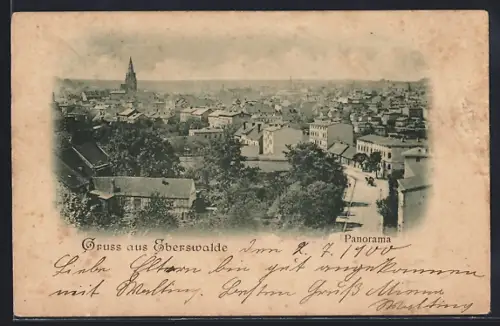 Gruss aus Eberswalde
Panorama
den 2.7.1900
Liebe Eltern bin gut angekommen
mit Besten Gruß